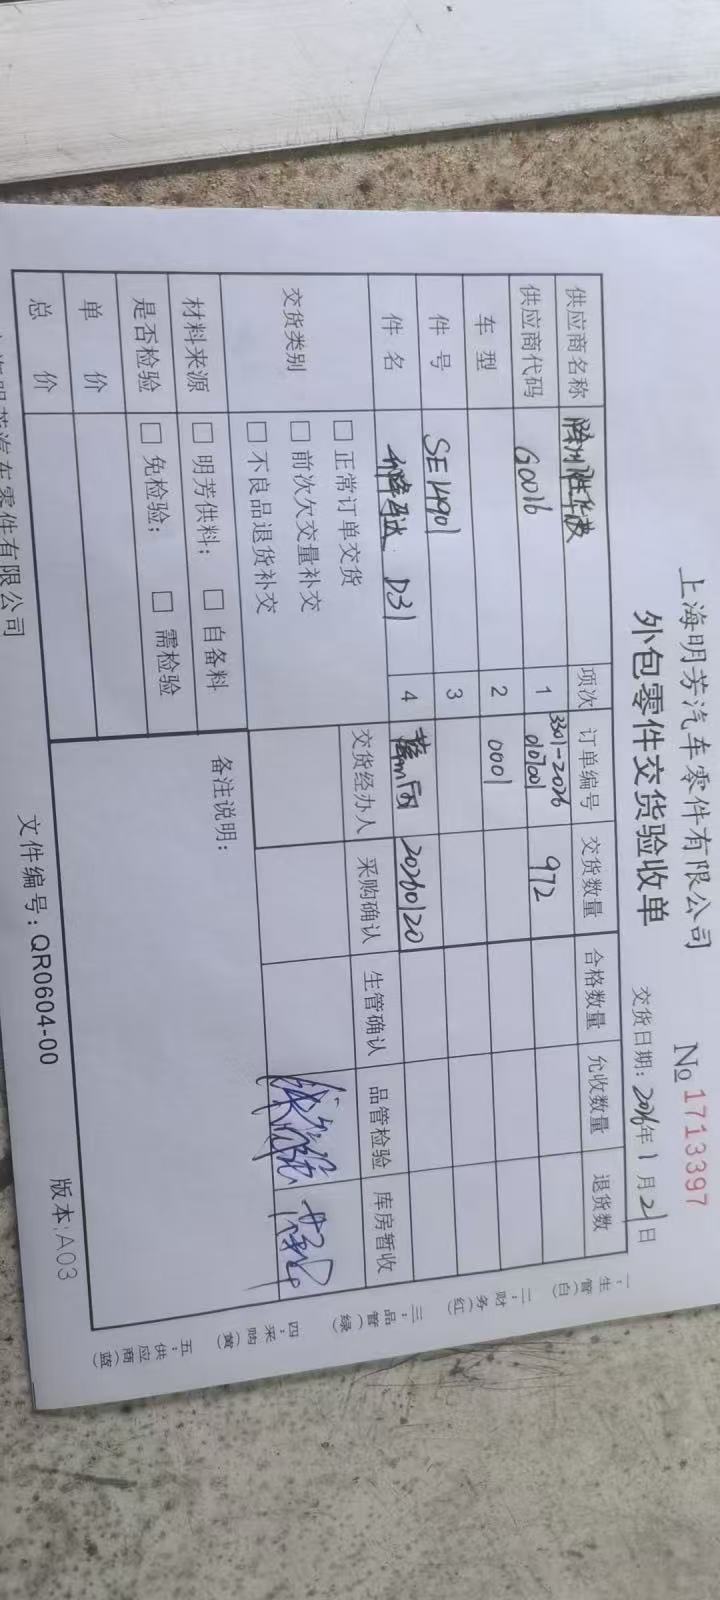 上海明芳汽车零件有限公司
外包零件交货验收单
No 1713397
交货日期：2026年1月21日
供应商名称
项次 订单编号 交货数量 合格数量 允收数量 退货数
供应商代码 G0016
1 3301-2026 972
0107001
车型
2 0001
件号 SE14901
3
件名 D31
4 20260120
交货类别
□ 正常订单交货
□ 前次欠交量补交
□ 不良品退货补交
交货经办人 采购确认 生管确认 品管检验 库房暂收
材料来源 □ 明芳供料； □ 自备料
是否检验 □ 免检验； □ 需检验
单价
总价
备注说明：
一：生管（白）
二：财务（红）
三：品管（绿）
四：采购（黄）
五：供应商（蓝）
文件编号：QR0604-00
版本:A03
上海明芳汽车零件有限公司